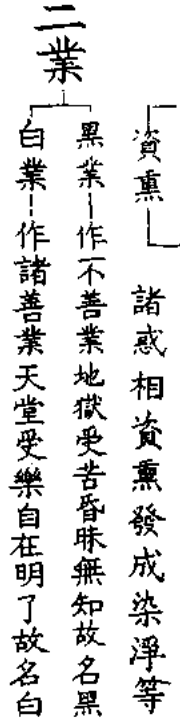 資熏
諸惑相資熏發成染淨等
二業
黑業 作不善業地獄受苦昏昧無知故名黑
白業 作諸善業天堂受樂自在明了故名白